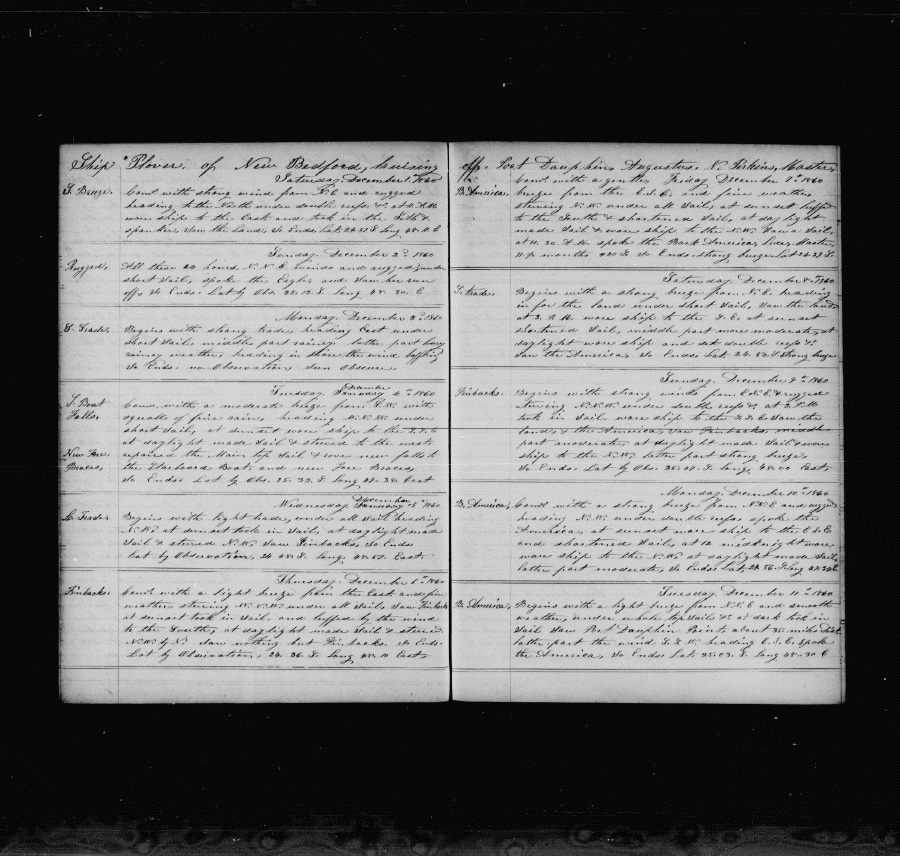 Ship Plover, of New Bedford, Cruising
Saturday December 1st 1860
S. Breeze. Com'd with strong wind from N.E and rugged
heading to the North under double reefs & at 11 A.M
wore ship to the East and took in the Jib &
spanker, Saw the Land, So Ends, Lat 24.51 S Long 48.11 E
Sunday December 2d 1860
Rugged. All these 24 hours, N.N.E. winds and rugged, under
short Sail, spoke the Eagle, and Saw her run
off, So Ends. Lat by Obs. 25.12. S. Long 48.30. E
Monday, December 3d 1860
S. Trade. Begins with strong trade, heading East under
Short Sail, middle part rainy, latter part
rainy weather, heading in shore the wind baffling
So Ends. no Observation Sun Obscure.
December
Tuesday January 4th 1860
S. Boat Com'd with a moderate breeze from S.W. with
Falls. squalls of fine rain, heading N.N.W. under
short Sail, at sunset wore ship to the S.S.E
at daylight made Sail & steered to the west
New Fore repaired the Main top Sail & rove new falls to
Braces, the Starboard Boat and new Fore Braces,
So Ends. Lat by Obs. 25.33. S Long 48.38. East
December
Wednesday January 5th 1860
L. Trade. Begins with light trade, under all Sail heading
N.W. at sunset took in Sail, at daylight made
Sail & steered N.W. Saw Finbacks, So Ends
Lat by Observation, 24.48. S. Long, 48.52. East
Thursday December 6th 1860
Finbacks. Com'd with a light breeze from the East and fine
weather steering N.N.W. under all Sail, Saw Finbacks
at sunset took in Sail, and luffed by the wind
to the South, at daylight made Sail & steered
N.W. by N saw nothing but Finbacks. So Ends
Lat by Observation, 24.36. S Long 48.11 East
off Port Dauphin, Augustus N. Perkins, Master,
Com'd with a gentle Friday December 7th 1860
B. America. breeze from the E.S.E. and fine weather
steering N.W. under all Sail, at sunset luffed
to the South & shortened Sail, at daylight
made Sail & wore ship to the N.W. Saw a Sail,
at 11.30. A.M. spoke the Bark America, Luce, Master,
11½ months 220 So Ends. Strong breeze Lat 24.39 S.
Saturday December 8th 1860
S. trade. Begins with a strong breeze from N.E. heading
in for the land under short Sail, Saw the land
at 3. P.M. wore ship to the S.E. at sunset
shortened Sail, middle part more moderate, at
daylight wore ship and set double reefs &c
Saw the America, So Ends. Lat. 24.50. S Strong breeze
Sunday, December 9th 1860
Finbacks. Begins with strong winds from E.N.E & rugged
steering N.N.W. under double reefs & at 3. P.M.
took in Sail, wore ship to the S.S.E. Saw the
land, & the America, Saw Finbacks, middle
part moderate, at daylight made Sail & wore
ship to the N.W. latter part strong breeze,
So Ends. Lat by Obs. 25.07. S. Long, 48.00 East.
Monday, December 10th 1860
B. America. Com'd with a strong breeze from N.N.E and rugged
heading N.W. under double reefs spoke the
America, at sunset wore ship to the E.S.E
and shortened Sail, at 12 midknight wore
wore ship to the N.W. at daylight made Sail,
latter part moderate, So Ends. Lat. 24.56. S. Long 47.39 E
Tuesday, December 11th 1860
B. America. Begins with a light breeze from N.N.E and smooth
weather, under whole top Sails & at dark took in
Sail Saw Port Dauphin Point about 35 miles dist
latter part the wind S.S.W. heading E.S.E. spoke
the America, So Ends. Lat. 25.03. S. Long 48.30 E